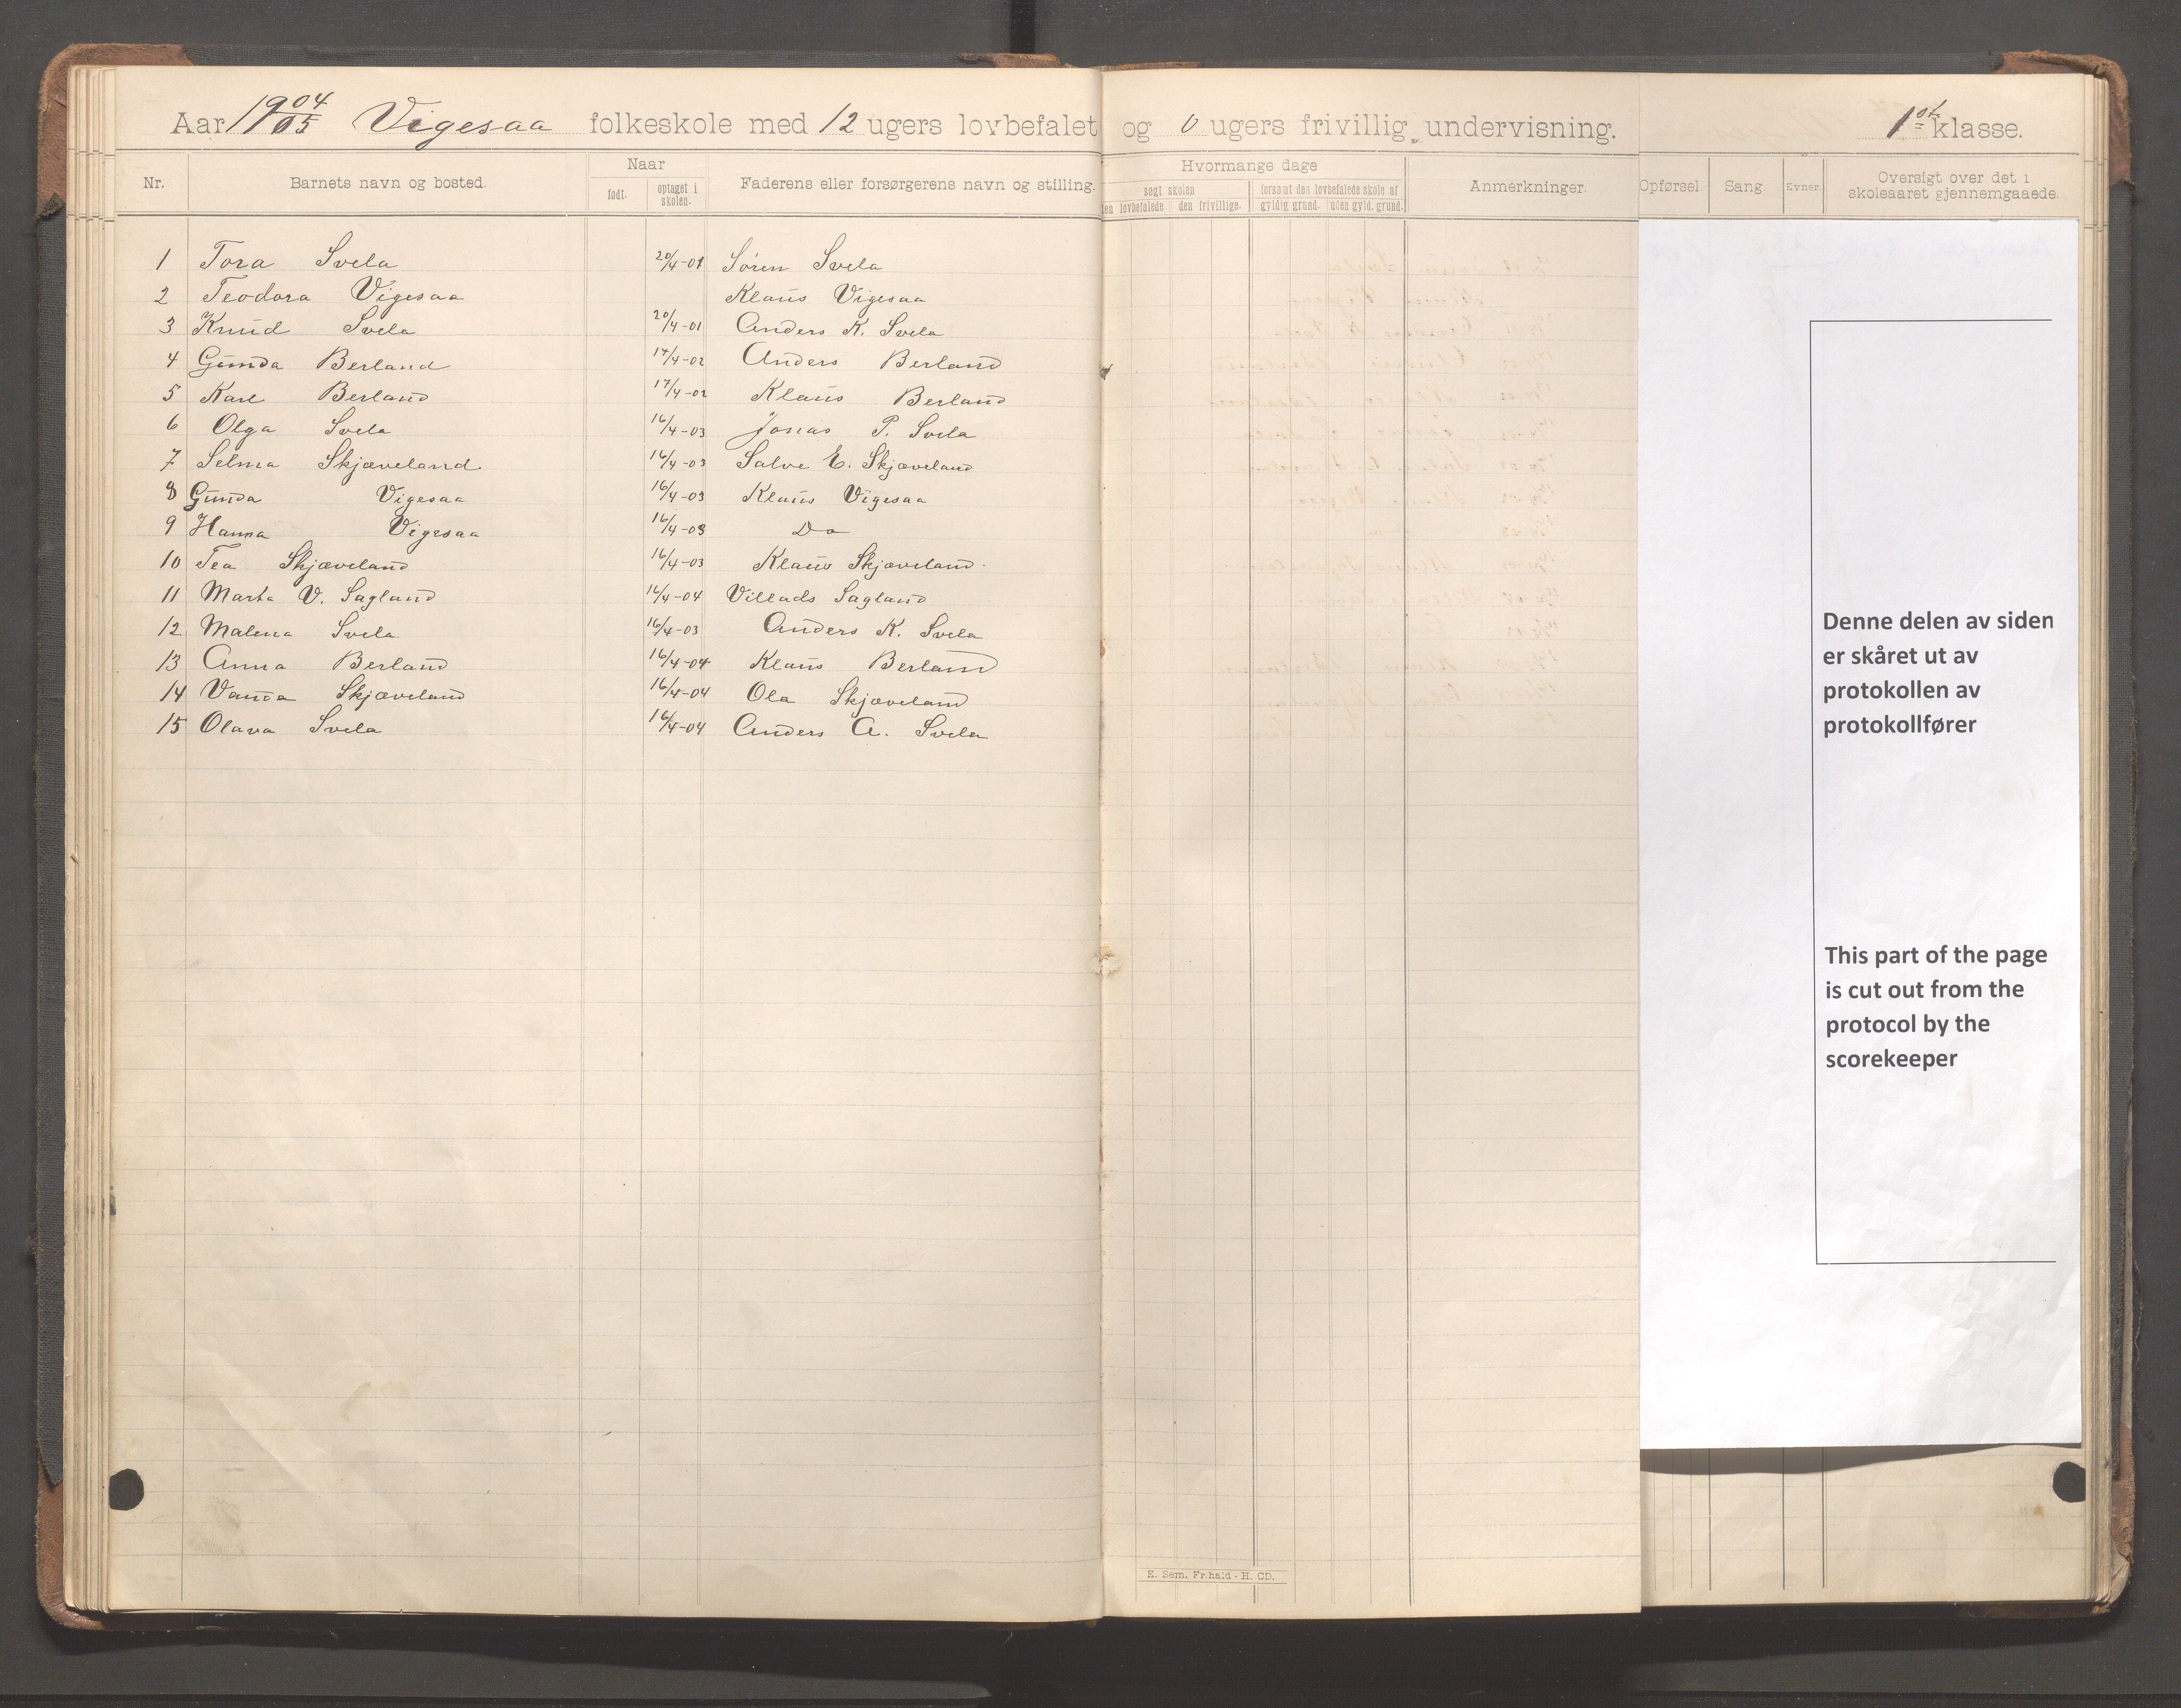 Aar 1904/05 Vigesaa folkeskole med 12 ugers lovbefalet og 0 ugers frivillig undervisning. 1st klasse.
Nr. Barnets navn og bosted. Naar født. optaget i skolen. Faderens eller forsørgerens navn og stilling. Hvormange dage søgt skolen den lovbefalede. den frivillige. forsømt den lovbefalede skole af gyldig grund. uden gyld. grund. Anmerkninger. Opførsel. Sang. Evner. Oversigt over det i skoleaaret gjennemgaaede.
1 Tora Svela 20/4-01 Søren Svela
2 Teodora Vigesaa Klaus Vigesaa
3 Knud Svela 20/4-01 Anders K. Svela
4 Gunda Berland 17/4-02 Anders Berland
5 Karl Berland 17/4-02 Klaus Berland
6 Olga Svela 16/4-03 Jonas P. Svela
7 Selma Skjæveland 16/4-03 Salve E. Skjæveland
8 Gunda Vigesaa 16/4-03 Klaus Vigesaa
9 Hanna Vigesaa 16/4-03 Do
10 Tea Skjæveland 16/4-03 Klaus Skjæveland.
11 Marta V. Sagland 16/4-04 Villads Sagland
12 Malena Svela 16/4-03 Anders K. Svela
13 Anna Berland 16/4-04 Klaus Berland
14 Vanda Skjæveland 16/4-04 Ola Skjæveland
15 Olava Svela 16/4-04 Anders A. Svela
Denne delen av siden
er skåret ut av
protokollen av
protokollfører
This part of the page
is cut out from the
protocol by the
scorekeeper
E. Sem, Fr.hald - H. CD.